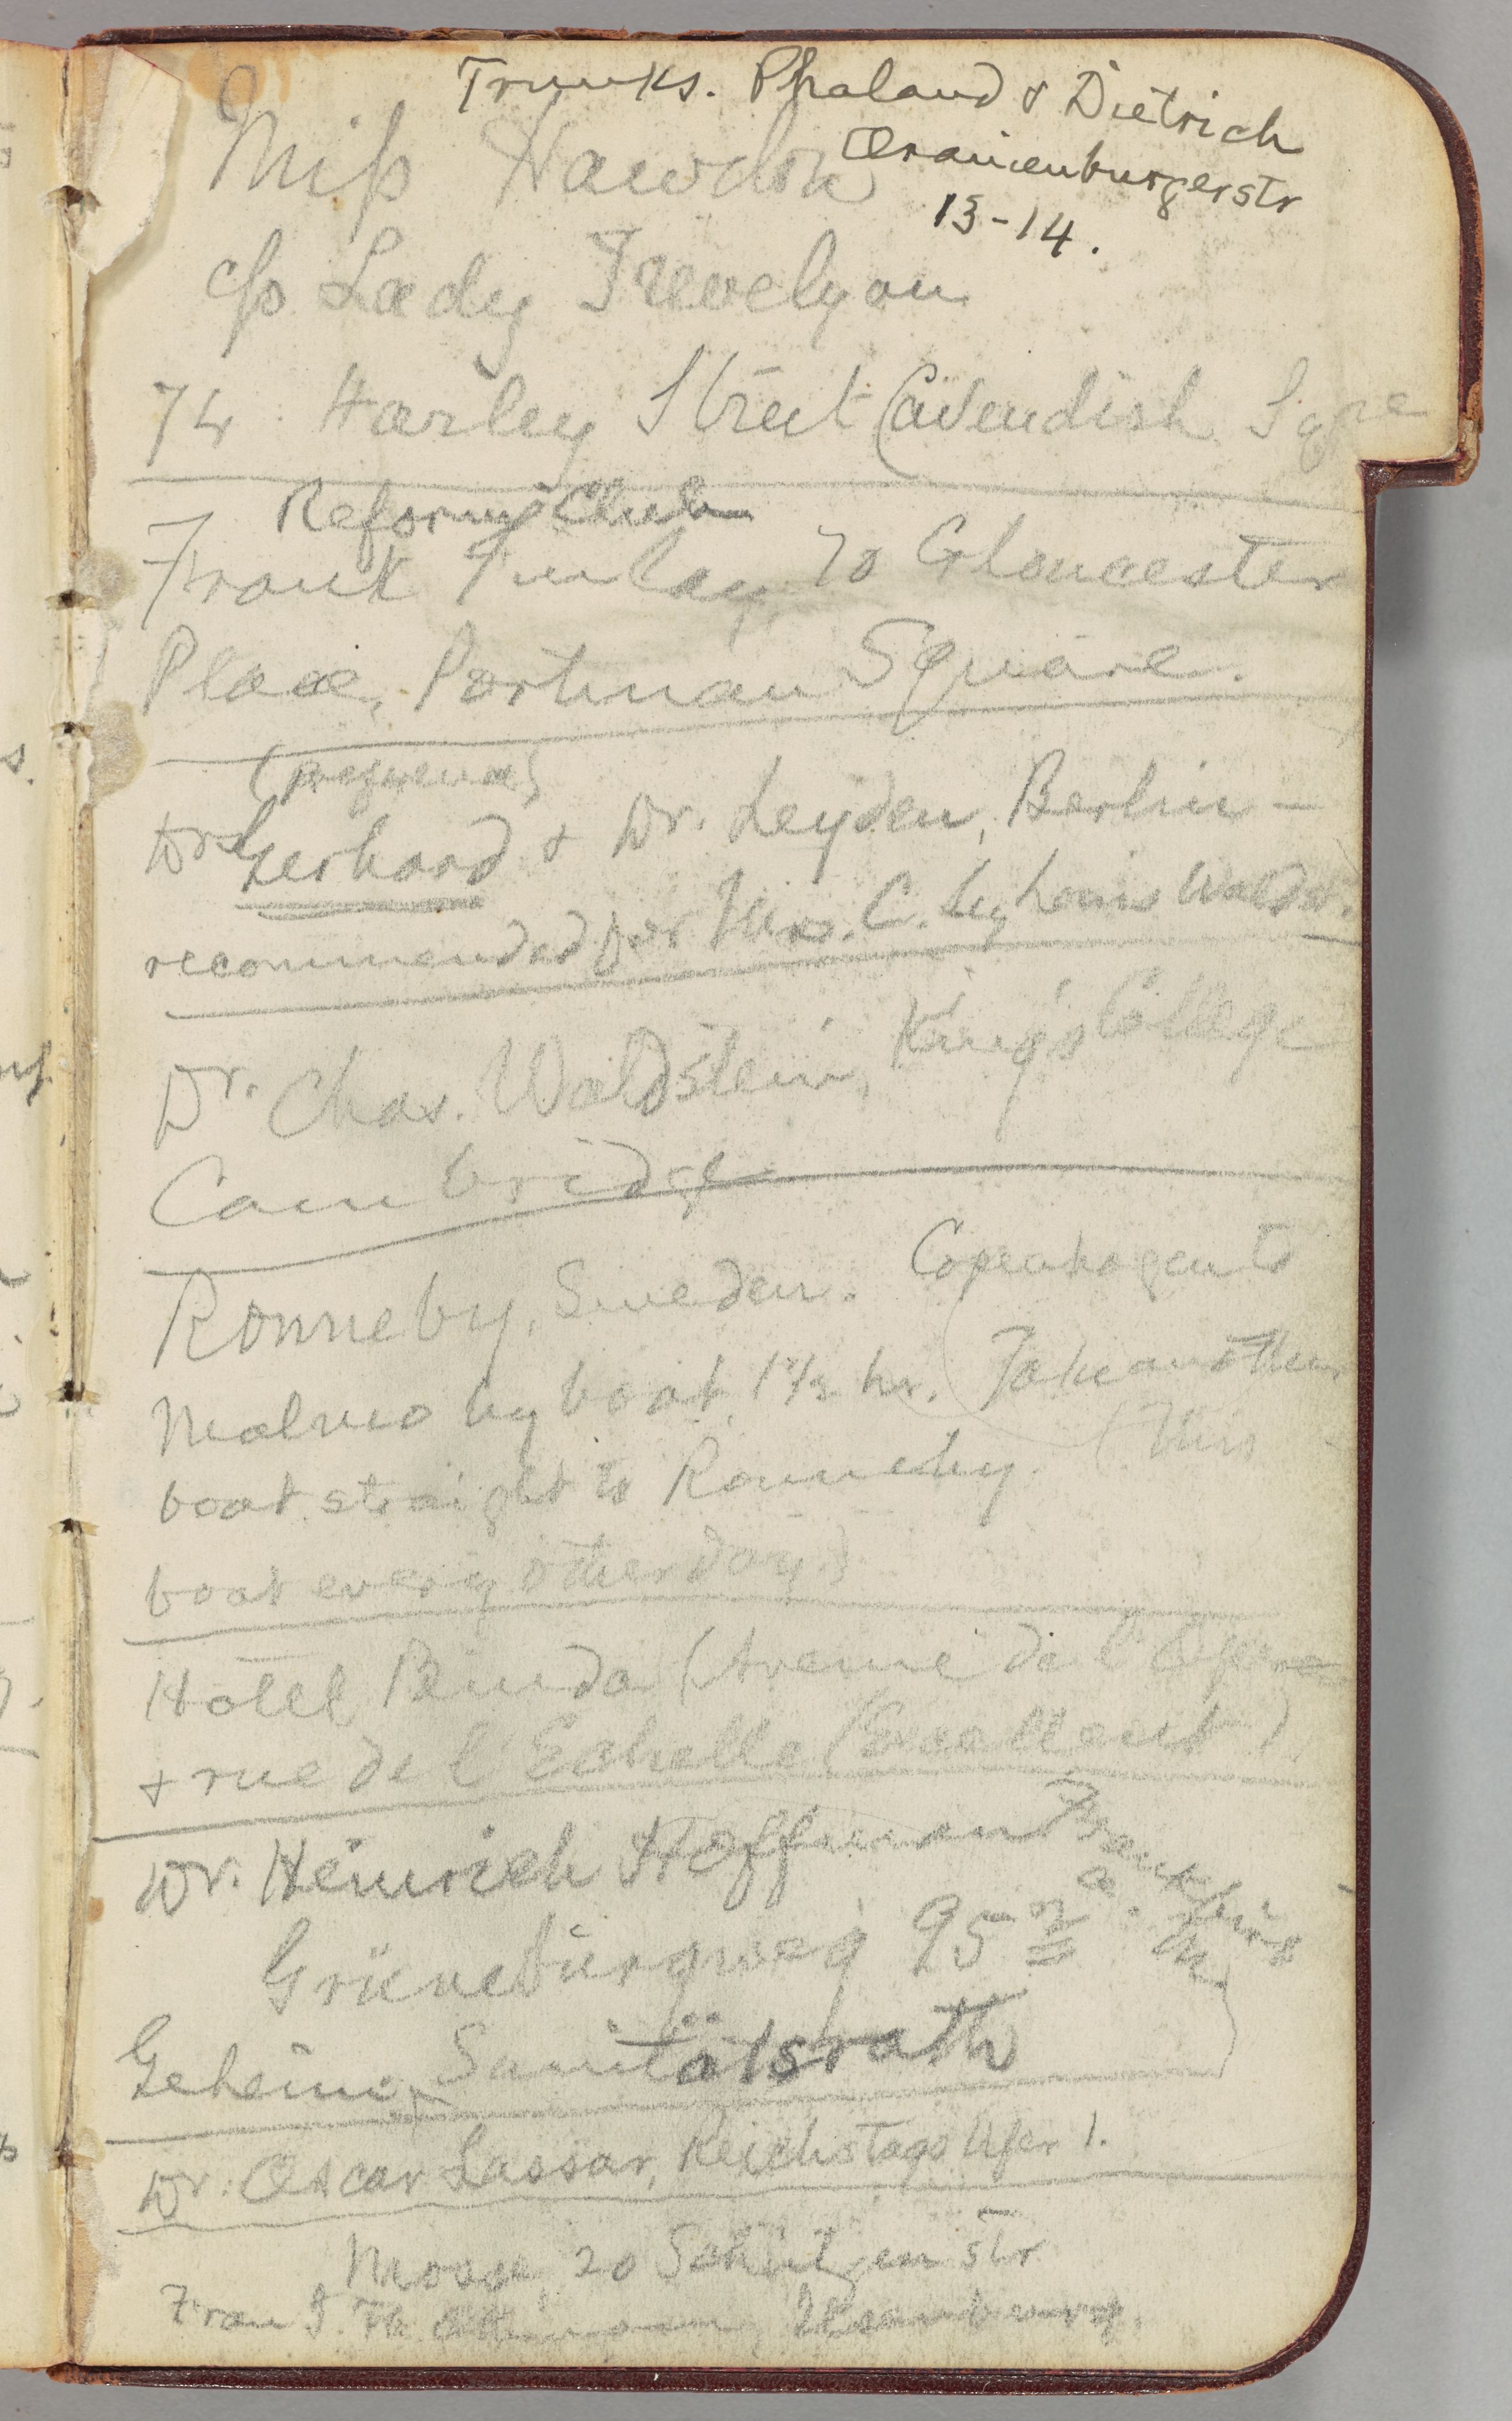 Trunks. Phaland & Dietrich
Oranienburgerstr
13-14.
Miss Hawdon
c/o Lady Trevelyan
74 Harley Street Cavendish Sqre
Reform Club
Frank Finlay, 70 Gloucester
Place, Portman Square.
Dr Gerhard & Dr. Leyden, Berlin —
recommended for Mrs. C. by Louis Waldst.
Dr. Chas. Waldstein, King's College
Cambridge
Ronneby, Sweden. Copenhagen to
Malmo by boat, 1½ hr. Take another
boat straight to Ronneby. (This
boat every other day)
Hôtel Binda (Avenue de l'Opera
& rue de l'Echelle (Excellent)
Dr. Heinrich Hoffman Frankfurt
a. M
Grüneburgweg 95
Geheimer Sanitätsrath
Dr. Oscar Lassar, Reichstags Ufer 1.
Mosse, 20 Schützenstr
Frau J. Th.